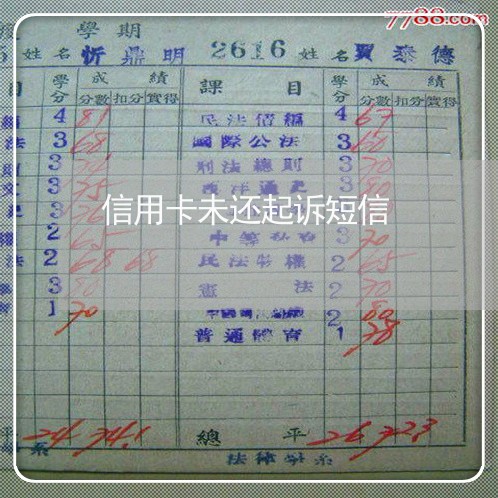 7788.com
學期
姓名 忻鼎明 2616 姓名 賈泰德
目 學分 成績 課目 學分 成績
分數 扣分 實得 分數 扣分 實得
4 81 民法債編 4 67
法 3 68 國際公法 3 60
3 刑法總則 3 70
3 75 西洋通史 3 80
信用卡未还起诉短信
2 65 3 70
法 2 68 68 民法物權 2 65
3 80 憲法 2 70
1 70 2 80
普通體育 1 78
平 24 74.1 總平 26 72.3
系 法律學系